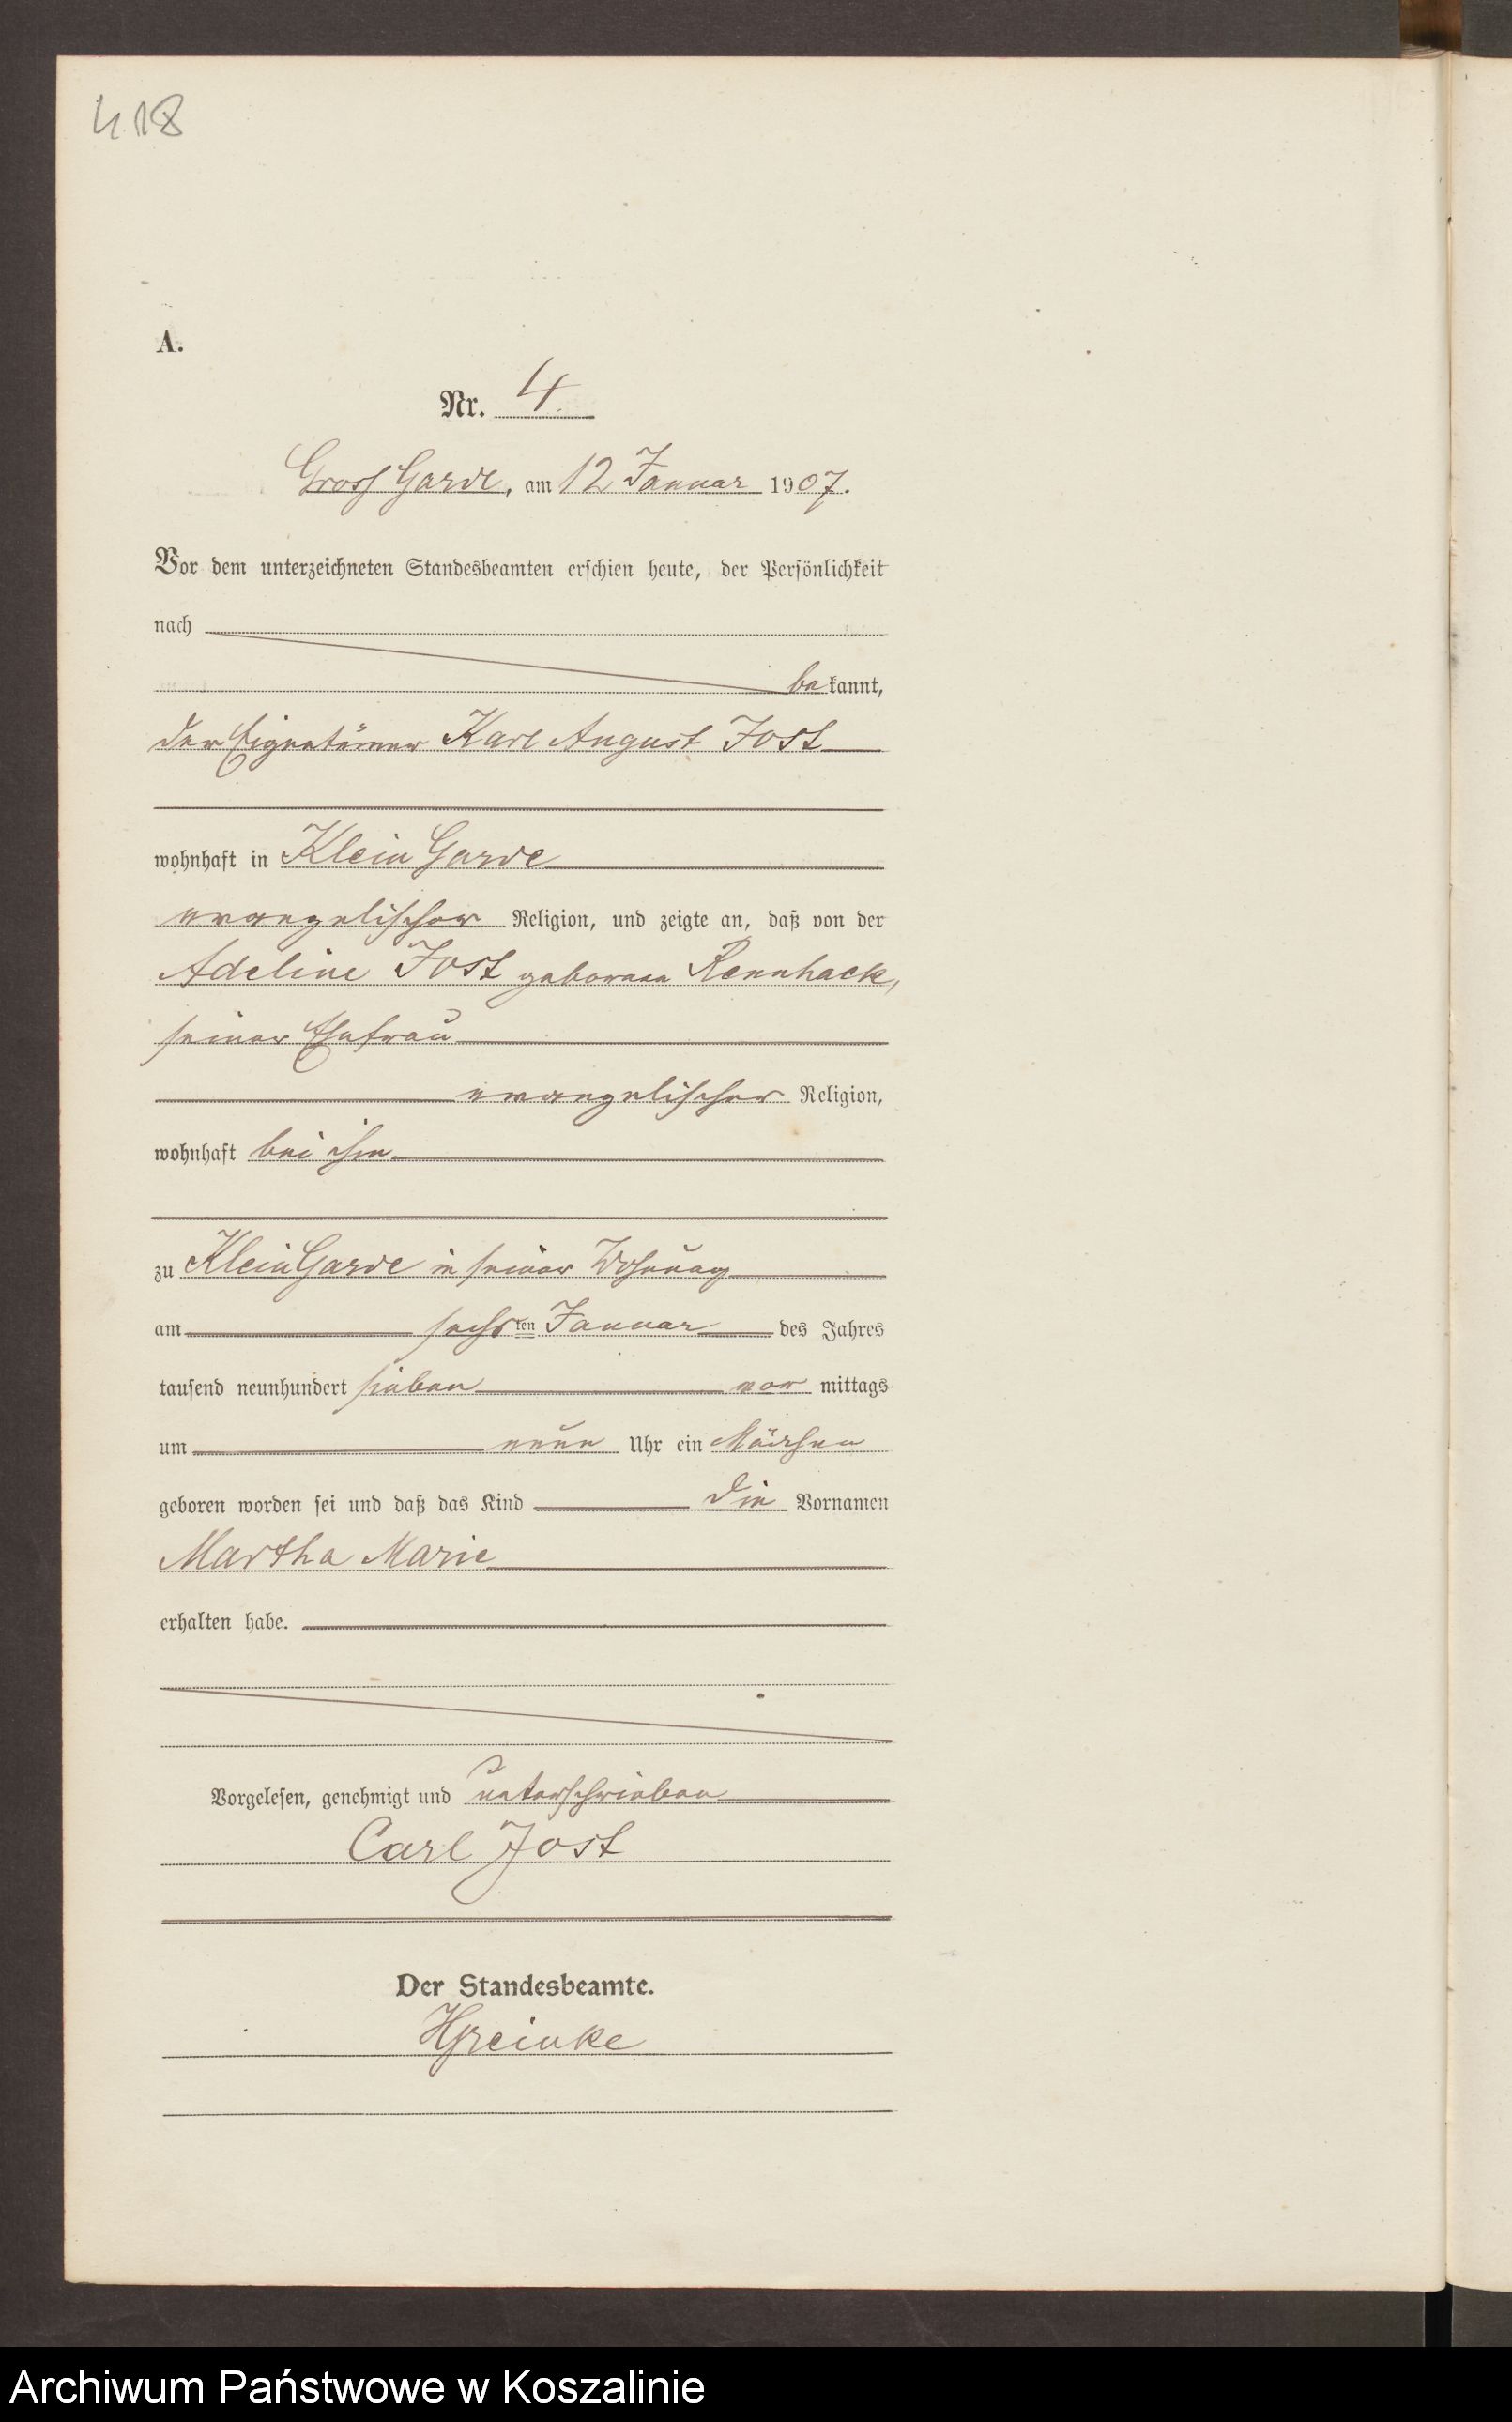 418
A.
Nr. 4.
Gross Garde, am 12 Januar 1907.
Vor dem unterzeichneten Standesbeamten erschien heute, der Persönlichkeit
nach
bekannt,
der Eigentümer Karl August Jost
wohnhaft in Klein Garde
evangelischer Religion, und zeigte an, daß von der
Adeline Jost geborenen Rennhack,
seiner Ehefrau
evangelischer Religion,
wohnhaft bei ihm
zu Klein Garde in seiner Wohnung
am sechsten Januar des Jahres
tausend neunhundert sieben vor mittags
um neun Uhr ein Mädchen
geboren worden sei und daß das Kind die Vornamen
Martha Marie
erhalten habe.
Vorgelesen, genehmigt und unterschrieben
Carl Jost
Der Standesbeamte.
Archiwum Państwowe w Koszalinie